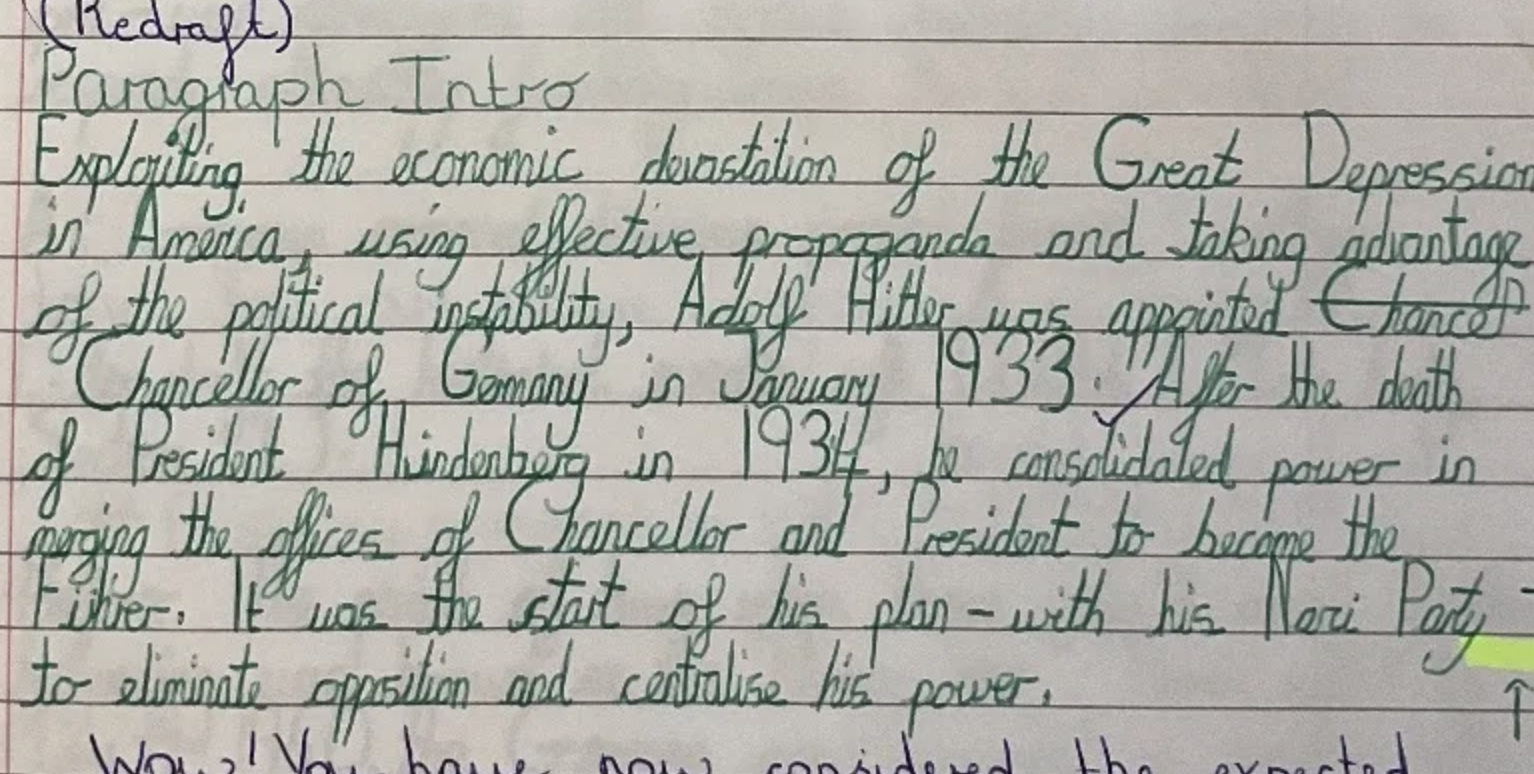 (Redraft)
Paragraph Intro
Exploiting the economic devastation of the Great Depression
in America, using effective propaganda and taking advantage
of the political instability, Adolf Hitler was appointed Chancel
Chancellor of Germany in January 1933. After the death
of President Hindenberg in 1934, he consolidated power in
merging the offices of Chancellor and President to become the
It was the start of his plan - with his Nazi Party -
to eliminate opposition and centralise his power.
Wow! You have now considered the expected